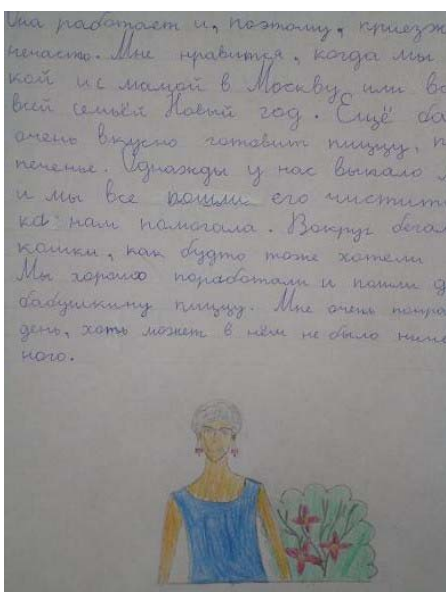 Она работает и, поэтому, приезж
нечасто. Мне нравится, когда мы
кой и с мамой в Москву или вс
всей семьёй Новый год. Ещё ба
очень вкусно готовит пиццу, п
печенье. Однажды у нас выпало
и мы все пошли его чистит
ка нам помогала. Вокруг бегал
кошки, как будто тоже хотели
Мы хорошо поработали и пошли
бабушкину пиццу. Мне очень понра
день, хоть может в нём не было ниче
ного.